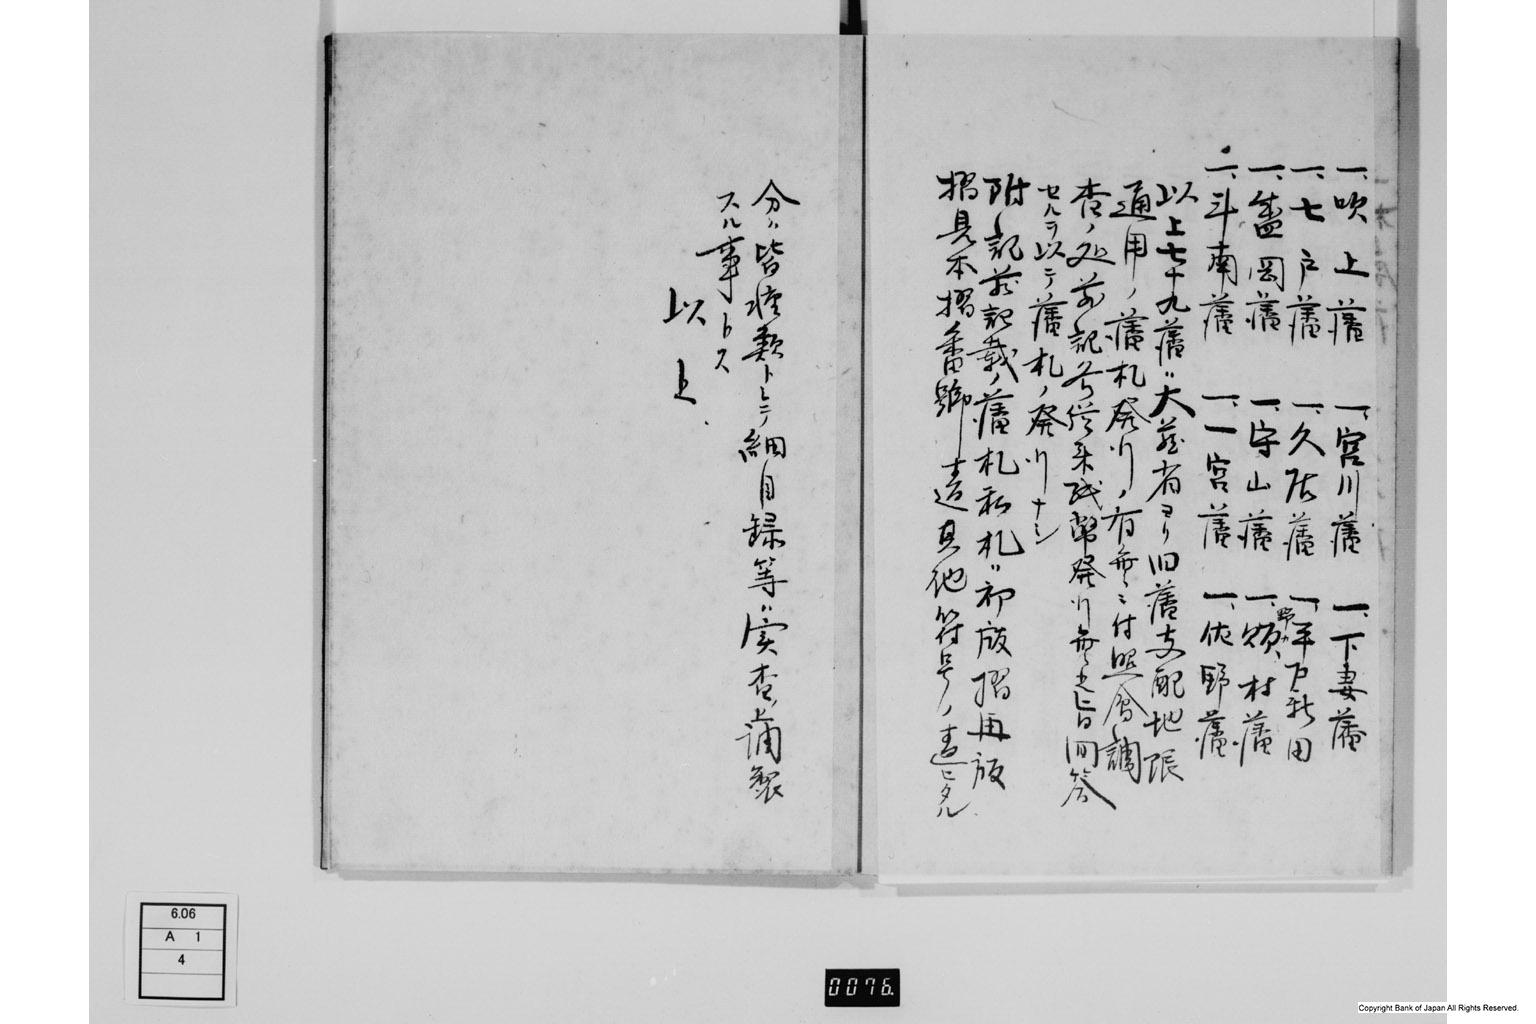 一、吹上藩　一、宮川藩　一、下妻藩
一、七戸藩　一、久居藩　一、平戸新田
一、盛岡藩　一、守山藩　一、村藩
一、斗南藩　一、一宮藩　一、佐野藩
以上七十九藩ハ大蔵省ヨリ旧藩支配地限
通用ノ藩札発行ノ有無ニ付照会調
査ノ処前記各従来紙幣発行無之旨回答
セルヲ以テ藩札ノ発行ナシ
附記前記載ノ藩札私札ハ初版摺再版
摺見本摺番号違其他符号ノ違ヒタル
分ハ皆種類トシテ細目録等ハ実査上調製
スル事トス
以上
6.06
A 1
4
0076.
Copyright Bank of Japan All Rights Reserved.